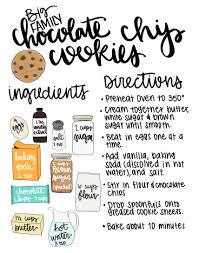 Big
FAMILY
chocolate chip
cookies
ingredients
eggs
vanilla
extract
salt
2 cups
sugar
baking
soda
brown
sugar
(packed)
chocolate chips
6 cups
flour
cups
butter
hot
water
Directions
• Preheat oven to 350°
• Cream together butter,
white sugar & brown
sugar until smooth.
• Beat in eggs one at a
time.
• Add vanilla, baking
soda (dissolved in hot
water), and salt.
• Stir in flour & chocolate
chips
• Drop spoonfuls onto
greased cookie sheets.
• Bake about 10 minutes